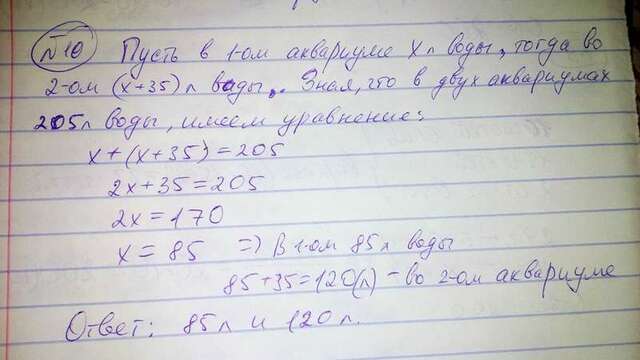 №10 Пусть в 1-ом аквариуме x л воды, тогда во
2-ом (x+35) л воды. Зная, что в двух аквариумах
205 л воды, имеем уравнение:
x+(x+35)=205
2x+35=205
2x=170
x=85 => В 1-ом 85 л воды
85+35=120(л) - во 2-ом аквариуме
Ответ: 85 л и 120 л.